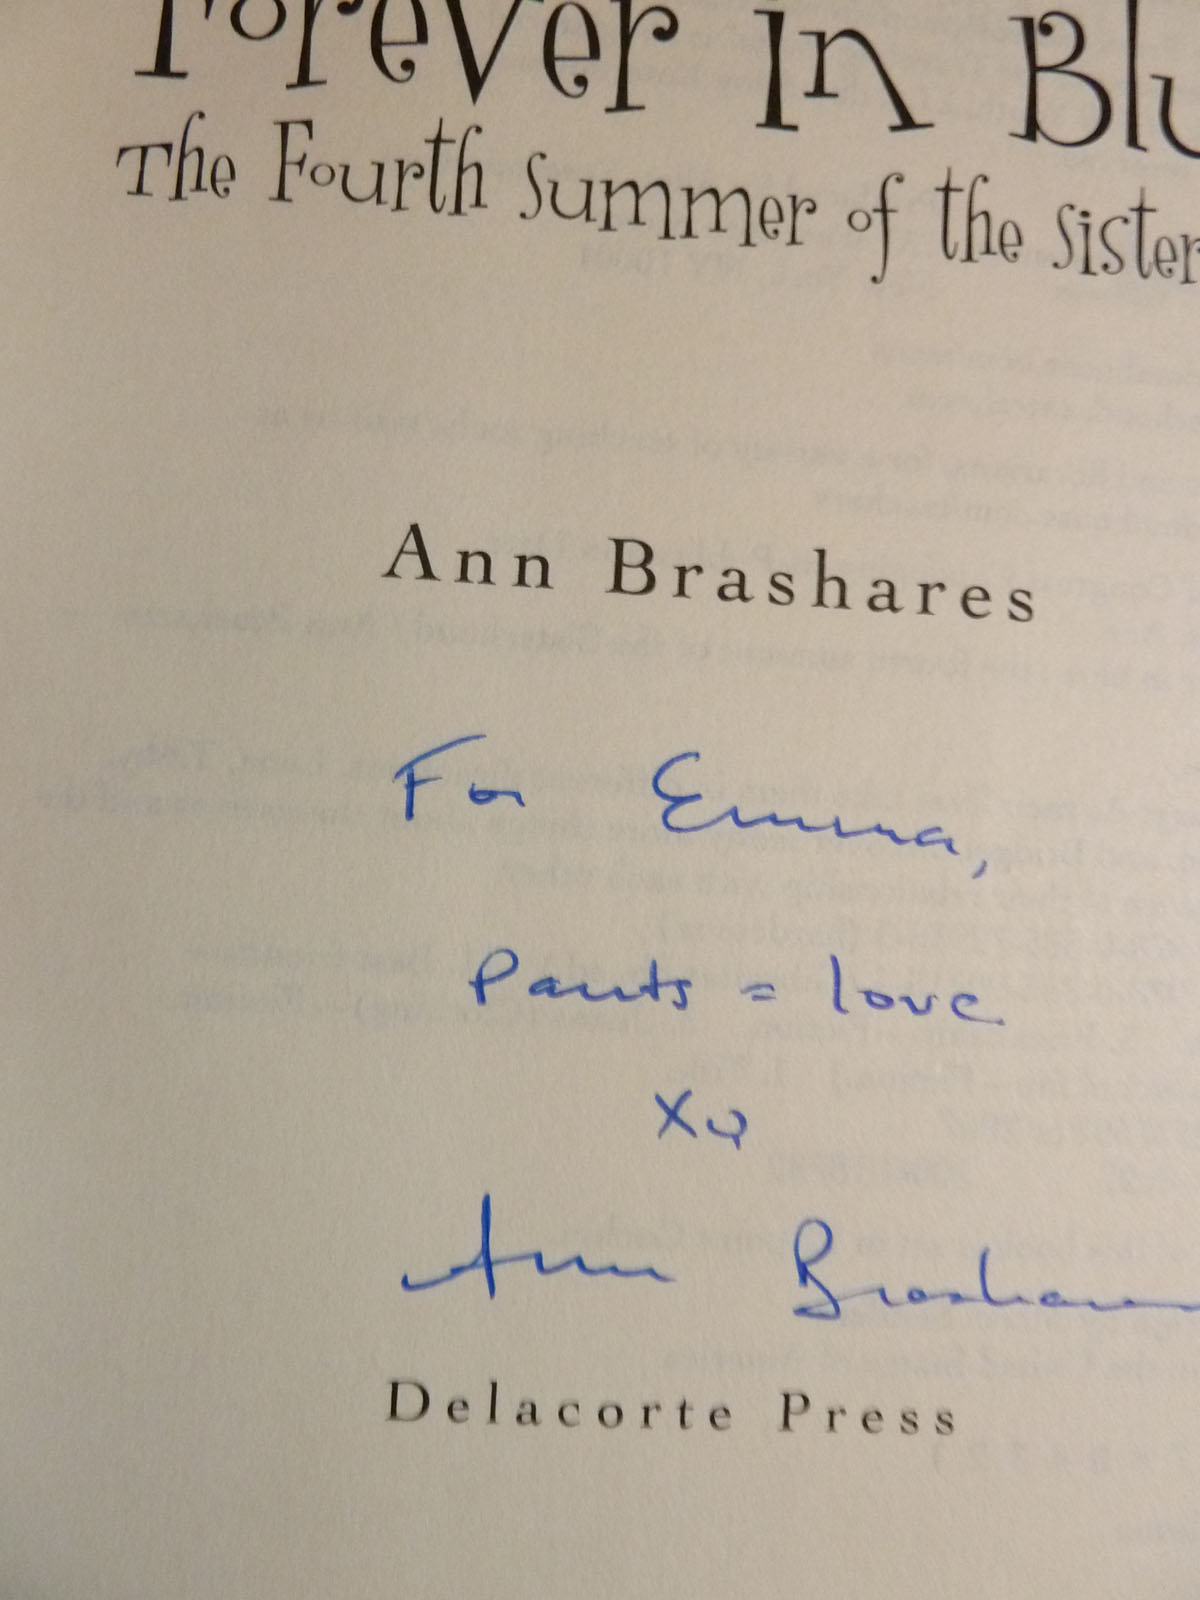 Forever in Blu
The Fourth Summer of the Sister
Ann Brashares
For Emma,
Pants = love
xo
Ann Brashares
Delacorte Press